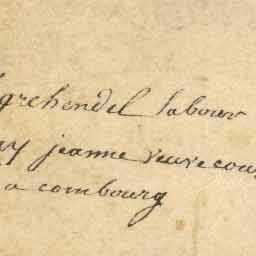 grehendel labour
jeanne veuve cou
a combourg